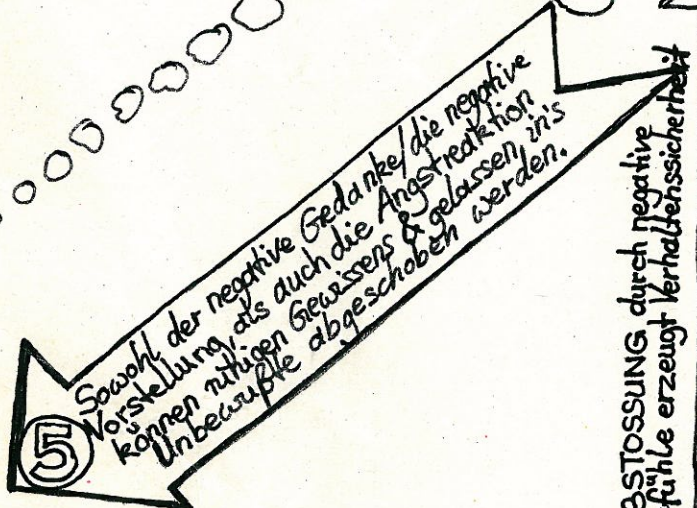 Sowohl der negative Gedanke/die negative
Vorstellung, als auch die Angstreaktion
können ruhigen Gewissens & gelassen in's
Unbewußte abgeschoben werden.
5
BSTOSSUNG durch negative
fühle erzeugt Verhaltenssicherheit